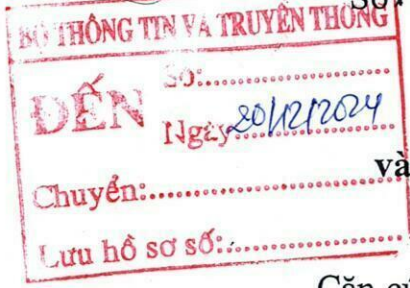 Số
BỘ THÔNG TIN VÀ TRUYỀN THÔNG
ĐẾN
Số:....................
Ngày 20/12/2024
và
Chuyển:....................
Lưu hồ sơ số:....................
Căn cứ